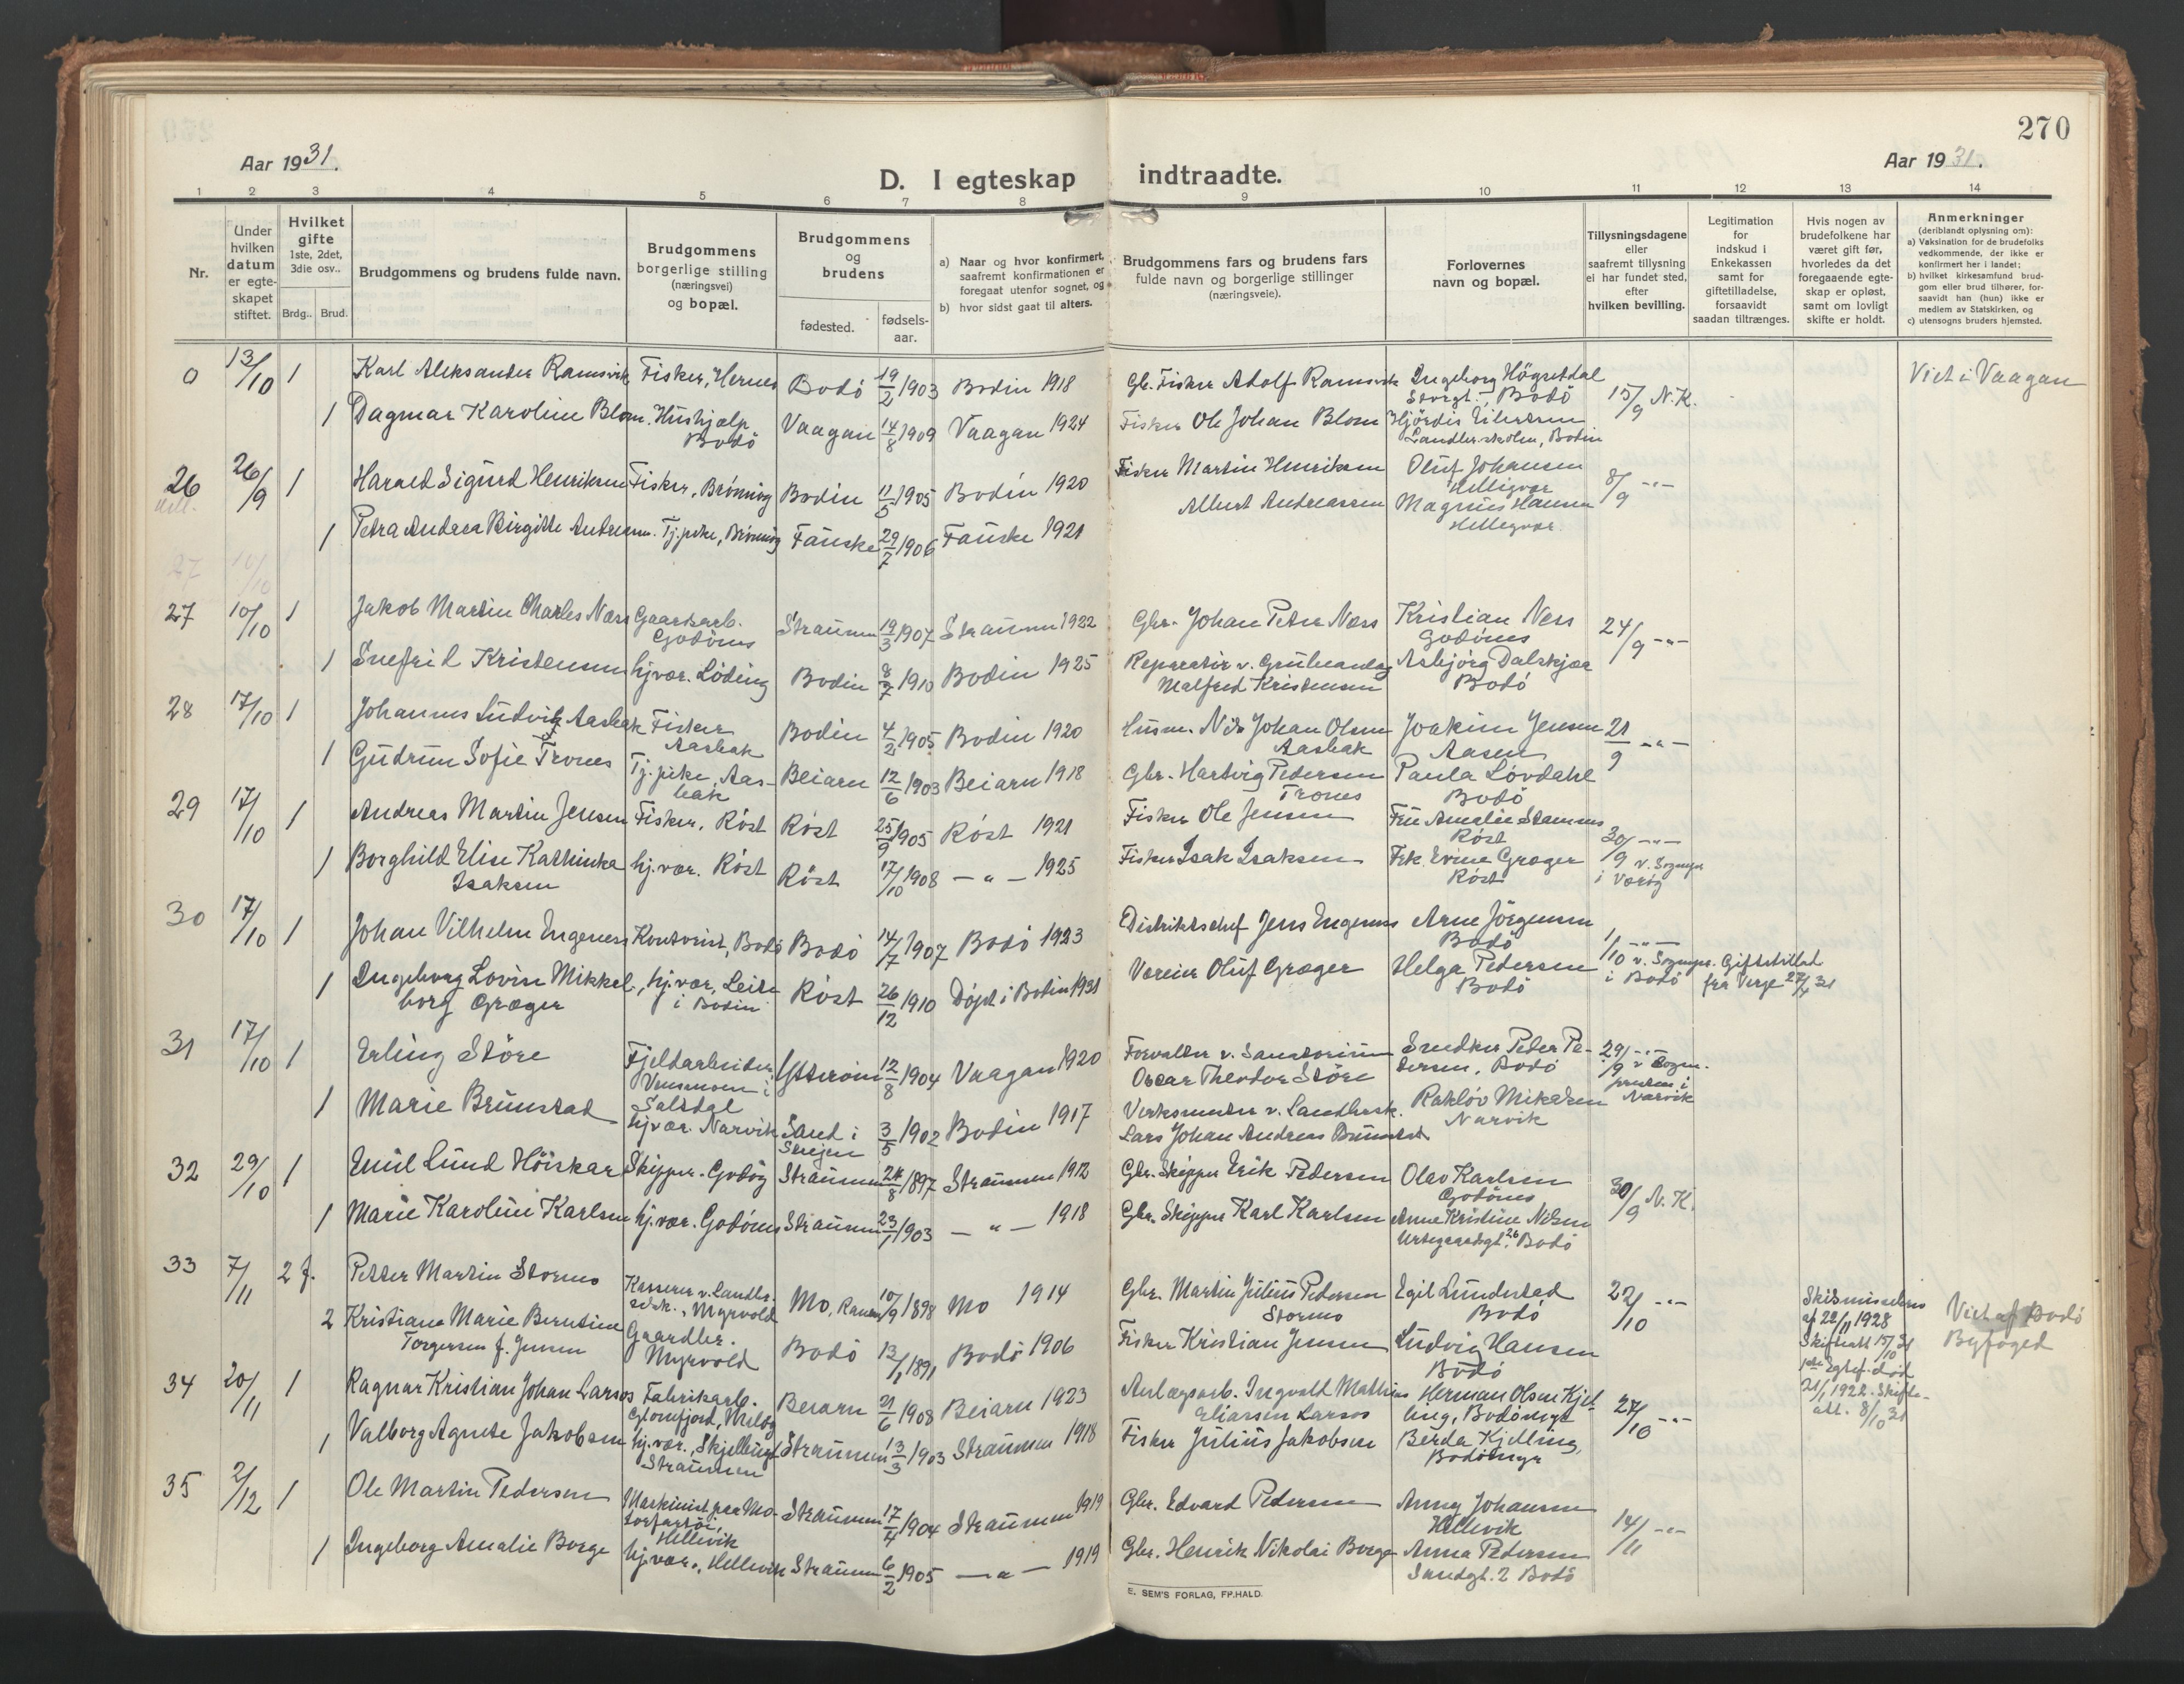 270
Aar 1931.
Aar 1931.
D. I egteskap indtraadte.
1 2 3 4 5 6 7 8 9 10 11 12 13 14
Nr.
Under hvilken datum er egte-skapet stiftet.
Hvilket gifte 1ste, 2det, 3die osv..
Brdg.. Brud.
Brudgommens og brudens fulde navn.
Brudgommens borgerlige stilling (næringsvei) og bopæl.
Brudgommens og brudens
fødested.
fødsels-aar.
a) Naar og hvor konfirmert, saafremt konfirmationen er foregaat utenfor sognet, og
b) hvor sidst gaat til alters.
Brudgommens fars og brudens fars fulde navn og borgerlige stillinger (næringsveie).
Forlovernes navn og bopæl.
Tillysningsdagene eller saafremt tillysning ei har fundet sted, efter hvilken bevilling.
Legitimation for indskud i Enkekassen samt for giftetilladelse, forsaavidt saadan tiltrænges.
Hvis nogen av brudefolkene har været gift før, hvorledes da det foregaaende egte-skap er opløst, samt om lovligt skifte er holdt.
Anmerkninger (deriblandt oplysning om): a) Vaksination for de brudefolks vedkommende, der ikke er konfirmert her i landet; b) hvilket kirkesamfund brud-gom eller brud tilhører, for-saavidt han (hun) ikke er medlem av Statskirken, og c) utensogns bruders hjemsted.
0 13/10 1 Karl Aleksander Ramsvik Fisker, Hernes Bodö 19/2 1903 Bodin 1918 Gb. Fisker Adolf Ramsvik Ingeborg Högsetdal Storgt., Bodö 15/9 N.K. Viet i Vaagan
1 Dagmar Karoline Blom. Hushjælp Bodö Vaagan 14/8 1909 Vaagan 1924 Fisker Ole Johan Blom Hjördis Eilertsen Landbr.skolen, Bodin
26 26/9 1 Harald Sigurd Henriksen Fisker, Bodin 11/5 1905 Bodin 1920 Fisker Martin Henriksen Oluf Johansen Helligvær 8/9 -"-
1 Petra Andrea Birgitte Andreassen. Tj.pike, Fauske 29/7 1906 Fauske 1921 Albert Andreassen Magnus Hansen Helligvær.
27 10/10
27 10/10 1 Jakob Martin Charles Næss Gaardsarb. Godönes Straumen 19/3 1907 Straumen 1922 Gbr. Johan Peter Næss Kristian Ness Godönes 24/9 -"-
1 Snefrid Kristensen hj.vær. Löding Bodin 8/7 1910 Bodin 1925 Reparatör v. Malfred Kristensen Asbjörg Dalskjær Bodö
28 17/10 1 Johannes Ludvig Aasbak Fisker Aasbak Bodin 4/2 1905 Bodin 1920 Husm. Nils Johan Olsen Aasbak Joakim Jensen Aasen 21/9 -"-
1 Gudrun Sofie Trones Tj.pike, Aas-bak Beiarn 12/6 1903 Beiarn 1918 Gbr. Hartvig Pedersen Trones Paula Lövdahl Bodö
29 17/10 1 Andreas Martin Jensen Fisker, Röst Röst 25/9 1905 Röst 1921 Fisker Ole Jensen Fru Amalie Röst 30/9 -"- v. Sognepr. i Værøy
1 Borghild Elise Kathinka Isaksen hj.vær. Röst Röst 17/10 1908 -"- 1925 Fisker Isak Isaksen Frk. Evine Græger Röst
30 17/10 1 Johan Vilhelm Engenes Kontorist, Bodö Bodö 14/7 1907 Bodö 1923 Distriktschef Jens Engenes Arne Jörgensen Bodö 1/10 -"- v. Sognepr. i Bodö
1 Ingeborg Lovise Mikkel-borg Græger hj.vær, i Bodin Röst 26/12 1910 Döpt i Bodin 1931 Væreier Oluf Græger Helga Pedersen Bodö Giftetillad fra Verge 27/ 31
31 17/10 1 Erling Störe Fjeldarbeider, i Saltdal Ytterøen 12/8 1904 Vaagan 1920 Forvalter v. Sanatorium Oscar Theodor Störe Snedker Peder Pe-dersen, Bodö 29/9 -"- v Sogne-presten i Narvik
1 Marie Brunstad hj.vær. Narvik Sand i 3/5 1902 Bodin 1917 Verksmester v. Landbrsk. Lars Johan Andreas Brunstad Mikalsen Narvik
32 29/10 1 Emil Lund Höiskar Skipper. Godöy Straumen 24/8 1897 Straumen 1912 Gbr. Skipper Erik Pedersen Olav Karlsen Godönes 30/9 N.K.
1 Marie Karoline Karlsen hj.vær. Godönes Straumen 23/1 1903 -"- 1918 Gbr. Skipper Karl Karlsen Anne Kristine Nilsen Urtegaardsgt. 26 Bodö
33 7/11 2 f. Petter Martin Stormo Kasserer v. Landbr.selsk., Myrvold Mo, Ranen 10/9 1898 Mo 1914 Gbr. Martin Julius Pedersen Stormo Egil Lundestad Bodö 22/10 -"- Skilsmisse af 22/11 1928 Skifteatt 15/10 31 Viet af Bodö Byfoged
2 Kristiane Marie Berntine Torgersen f. Jensen Gaardbr. Myrvold Bodö 13/1 1891 Bodö 1906 Fisker Kristian Jensen Ludvig Hansen Bodö 1ste Egtef. död 21/1 1922. Skifte-att. 8/10 31
34 20/11 1 Ragnar Kristian Johan Larsos Fabrikarb. Glomfjord, Melöy Beiarn 21/6 1908 Beiarn 1923 Anlægsarb. Ingvald Mathias Eliassen Larsos Herman Olsen Kjel-ling, Bodö 27/10 -"-
1 Valborg Agnete Jakobsen hj.vær, Straumen Straumen 13/3 1903 Straumen 1918 Fisker Julius Jakobsen Berda Kjelling,
35 2/12 1 Ole Martin Pedersen Maskinist paa Mo-torfartöi, Hellevik Straumen 17/4 1904 Straumen 1919 Gbr. Edvard Pedersen Anny Johansen Hellevik 14/11 -"-
1 Ingeborg Amalie Borge hj.vær., Hellevik Straumen 6/2 1905 -"- 1919 Gbr. Henrik Nikolai Borge Anna Pedersen Sandgt. 2 Bodö
E. SEM'S FORLAG, FP.HALD.